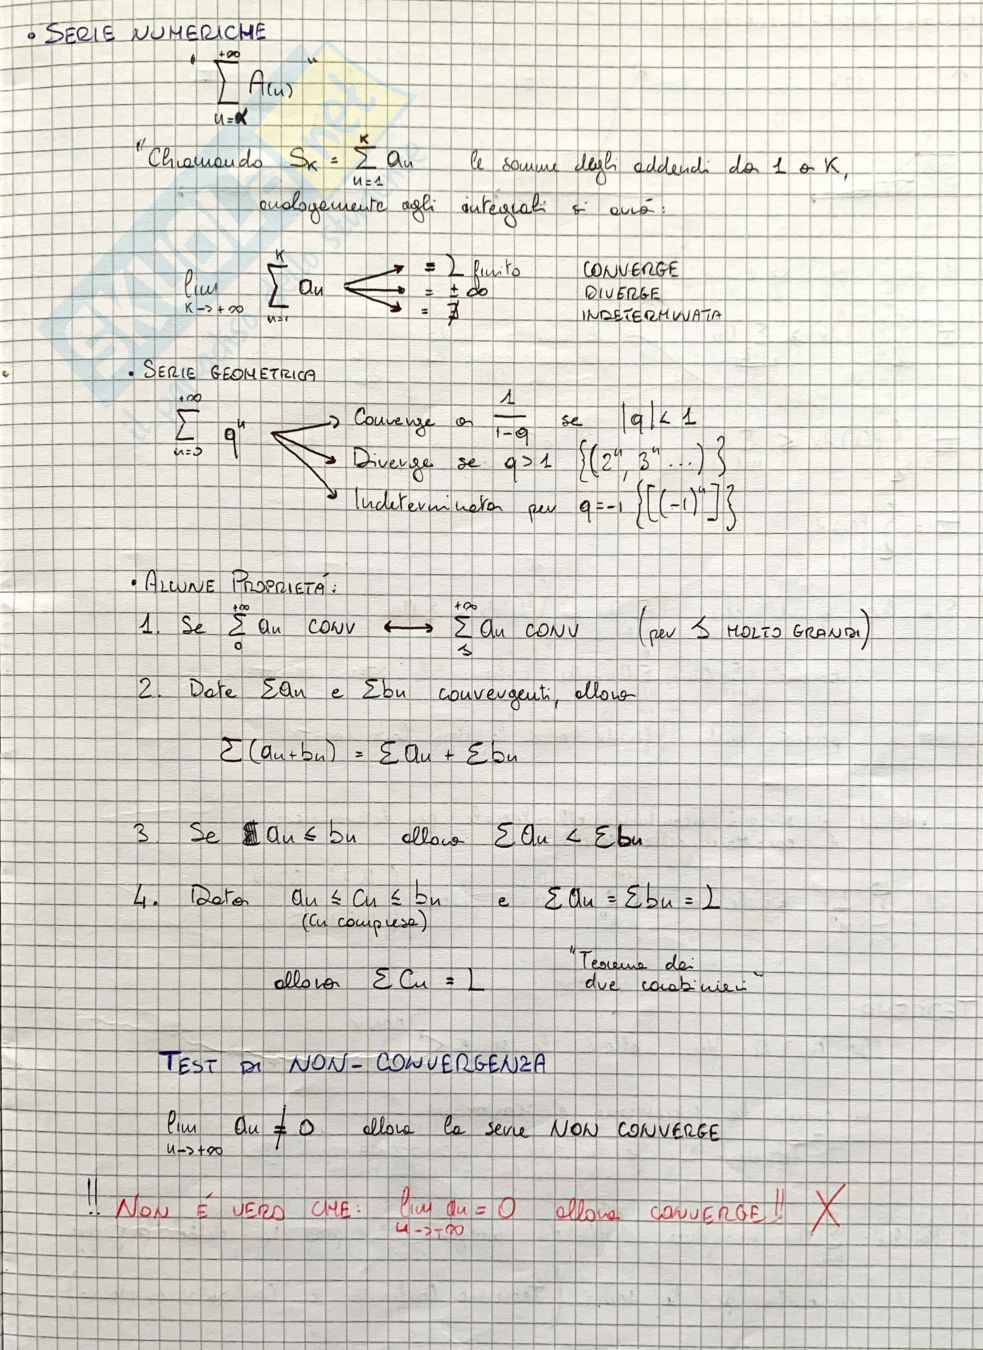 • SERIE NUMERICHE
" +∞ ∑ n=α A(n) "
"Chiamando S_K = K ∑ n=1 an le somme degli addendi da 1 a K,
analogamente agli integrali si avrà:
lim K->+∞ K ∑ n=1 an = L finito CONVERGE
= ±∞ DIVERGE
= ∄ INDETERMINATA
• SERIE GEOMETRICA
+∞ ∑ n=0 q^n Converge a 1/(1-q) se |q| < 1
Diverge se q>1 {(2^n, 3^n ...)}
Indeterminata per q=-1 {[(-1)^n]}
• ALCUNE PROPRIETÁ:
1. Se +∞ ∑ 0 an CONV ⟷ +∞ ∑ s an CONV (per S MOLTO GRANDI)
2. Date ∑an e ∑bn convergenti, allora
∑(an+bn) = ∑an + ∑bn
3 Se an ≤ bn allora ∑an < ∑bn
4. Data an ≤ cn ≤ bn e ∑an = ∑bn = L
(Cn compresa)
allora ∑Cn = L
"Teorema dei
due carabinieri"
TEST DI NON-CONVERGENZA
lim n->+∞ an ≠ 0 allora la serie NON CONVERGE
!! NON É VERO CHE: lim n->+∞ an = 0 allora CONVERGE!! X